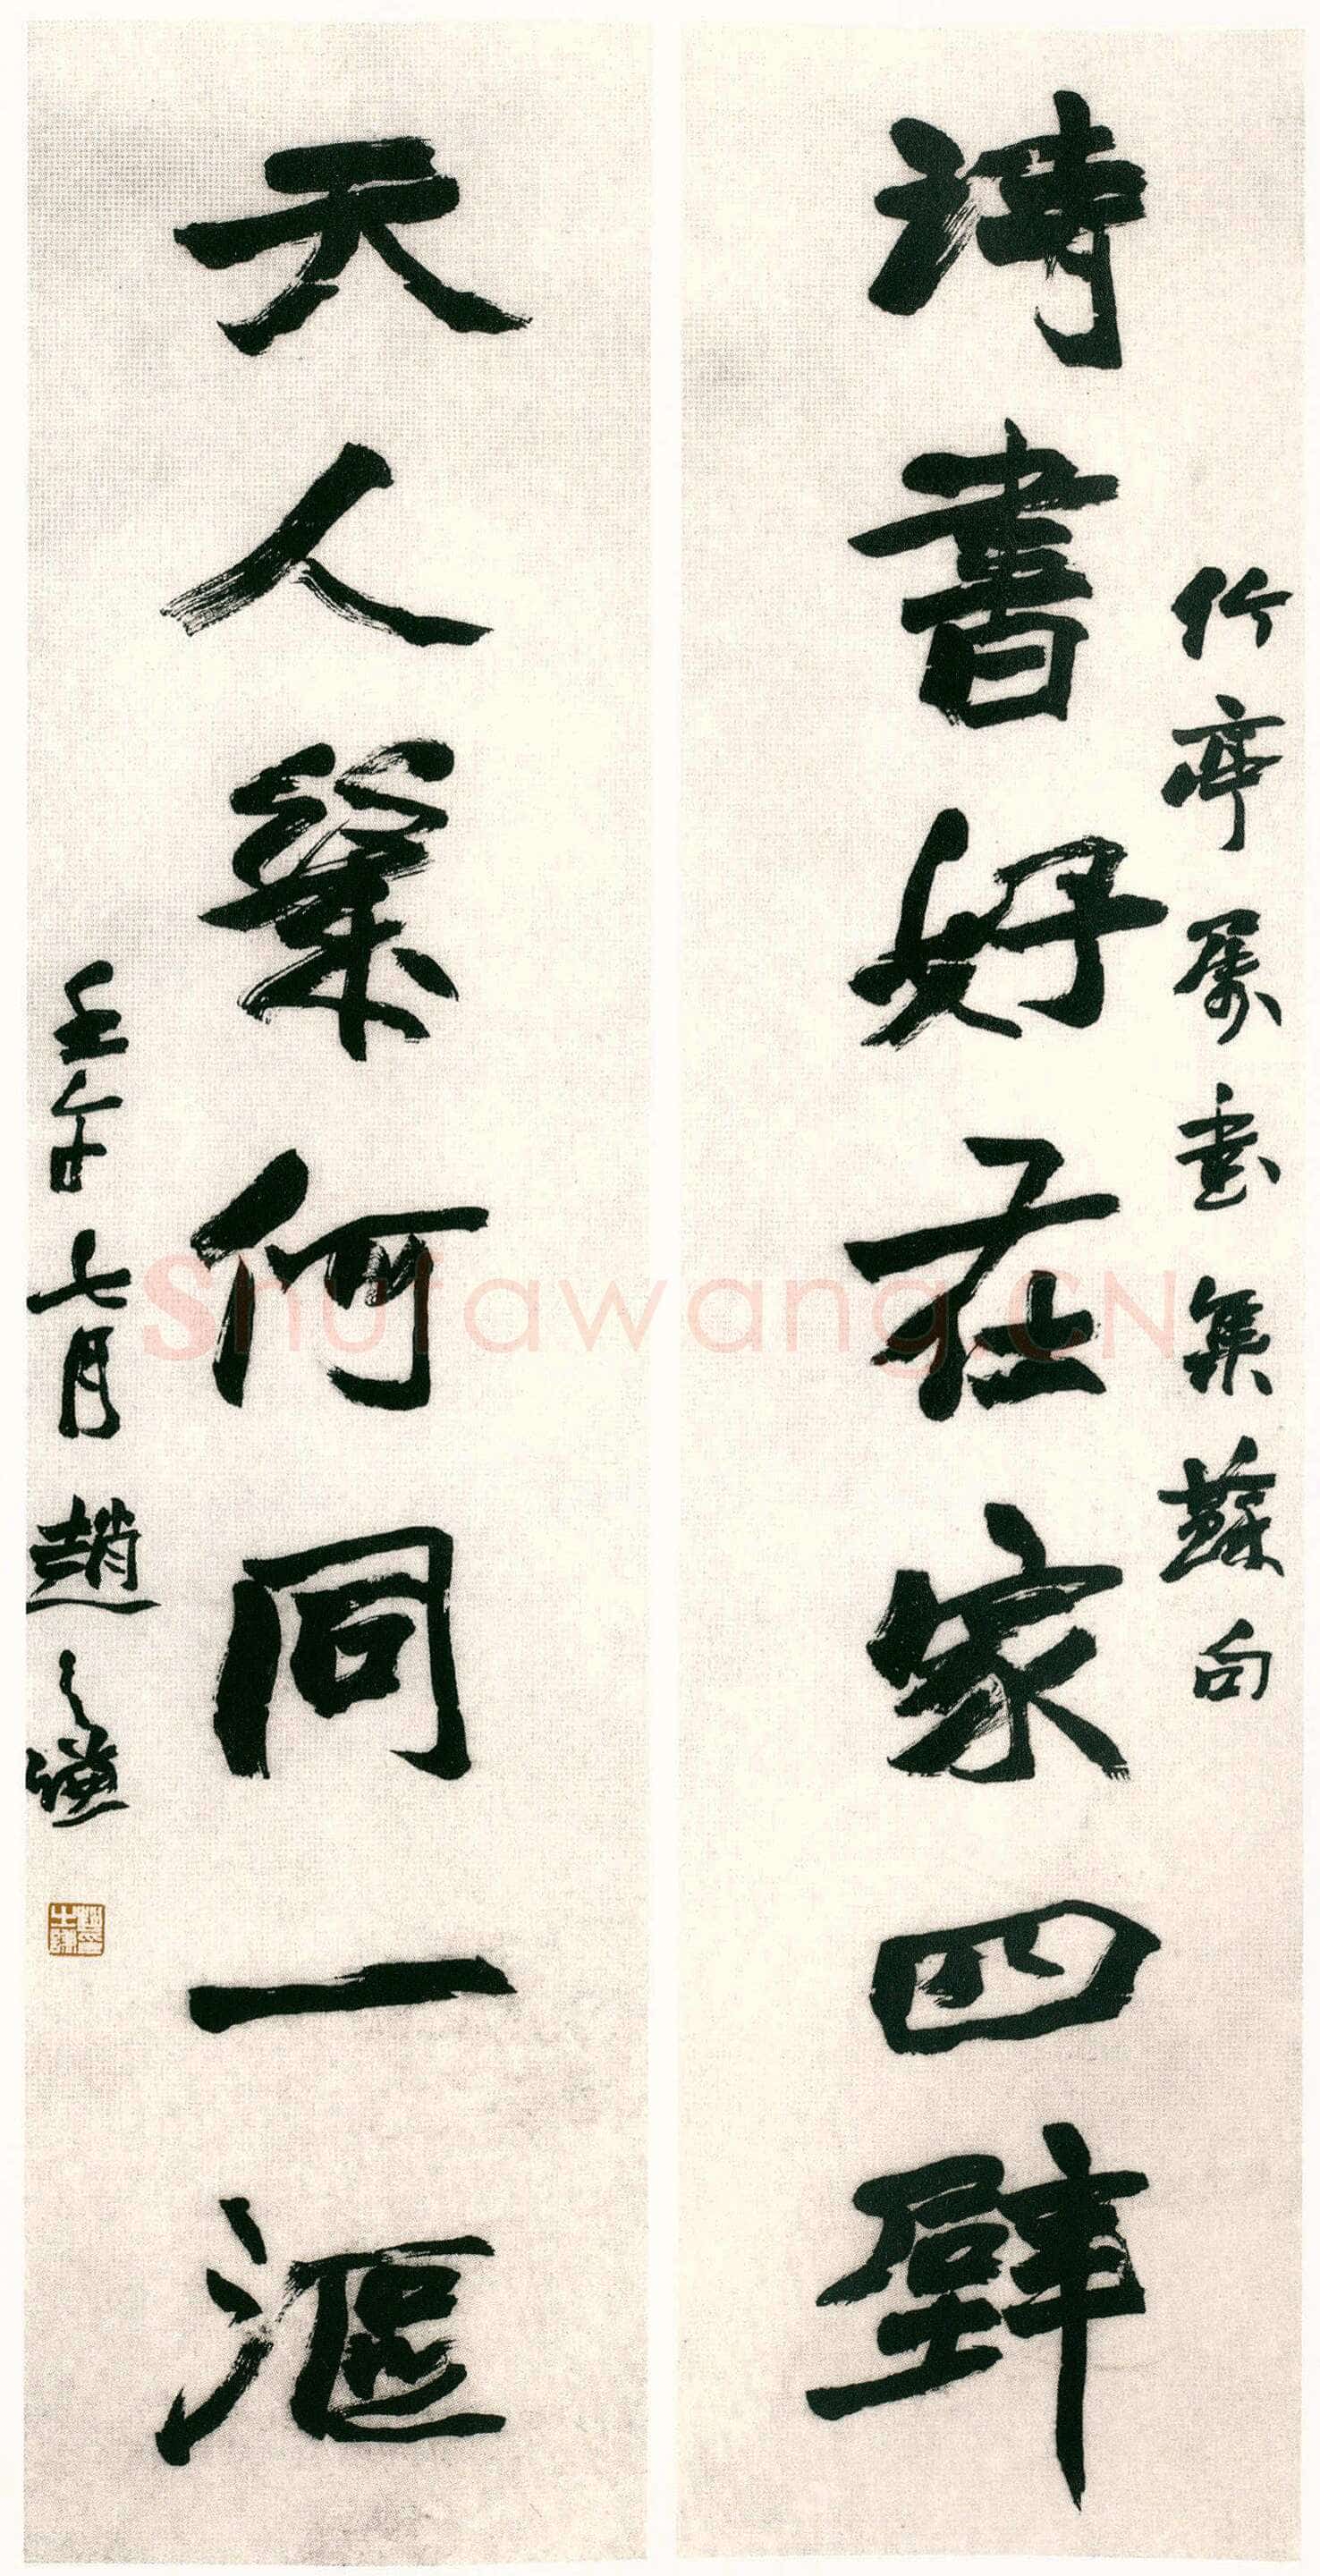 竹亭屬書集蘇句
詩書好在家四壁
天人幾何同一漚
壬午七月趙之謙
趙之謙印
Shufawang.CN